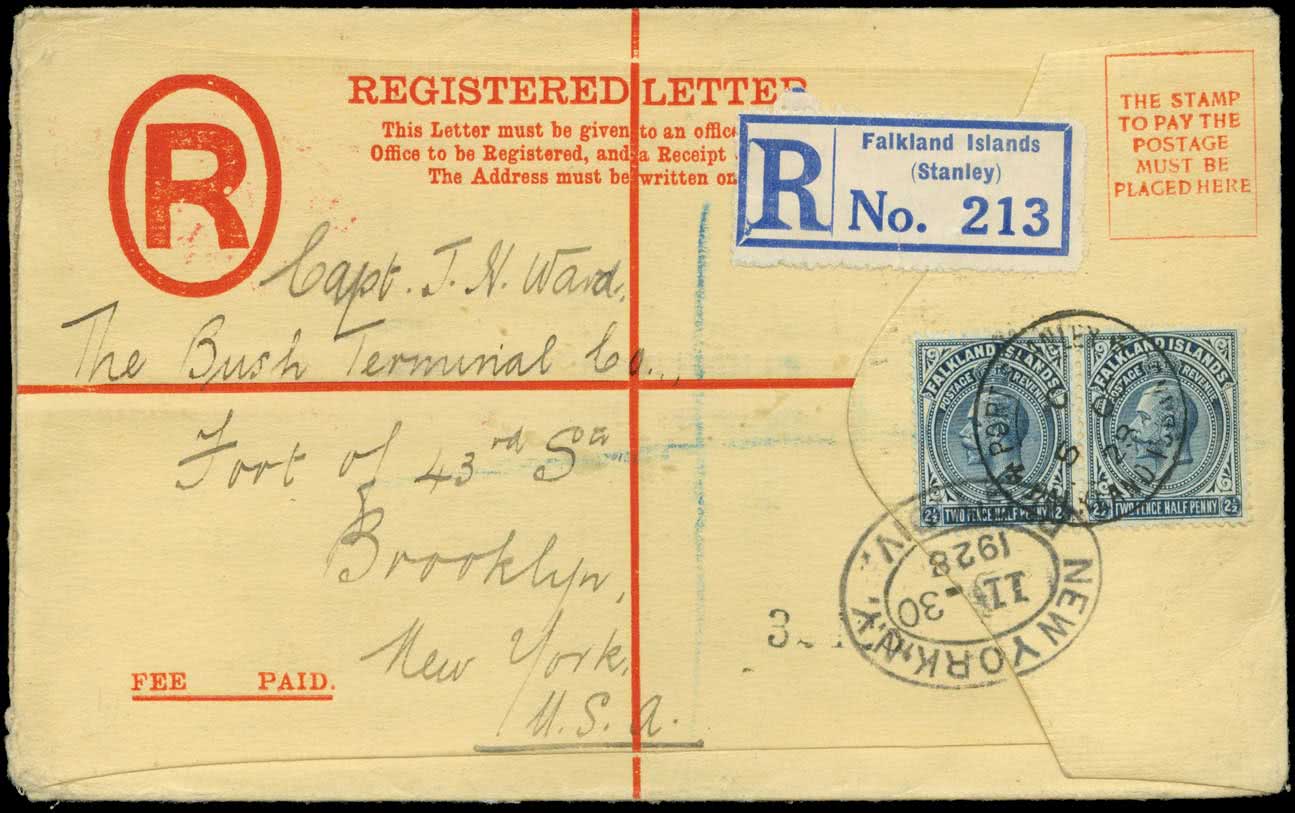 REGISTERED LETTER
This Letter must be given to an offic
Office to be Registered, and a Receipt
The Address must be written on
R
R
Falkland Islands
(Stanley)
No. 213
THE STAMP
TO PAY THE
POSTAGE
MUST BE
PLACED HERE
Capt. J. N. Ward,
The Bush Terminal Co.,
Foot of 43rd St
Brooklyn,
New York,
U.S.A.
FALKLAND ISLANDS
POSTAGE REVENUE
2½ TWO PENCE HALF PENNY 2½
FALKLAND ISLANDS
POSTAGE REVENUE
2½ TWO PENCE HALF PENNY 2½
FALKLAND
28
NEW YORK, N.Y.
11-30
1928
FEE PAID.